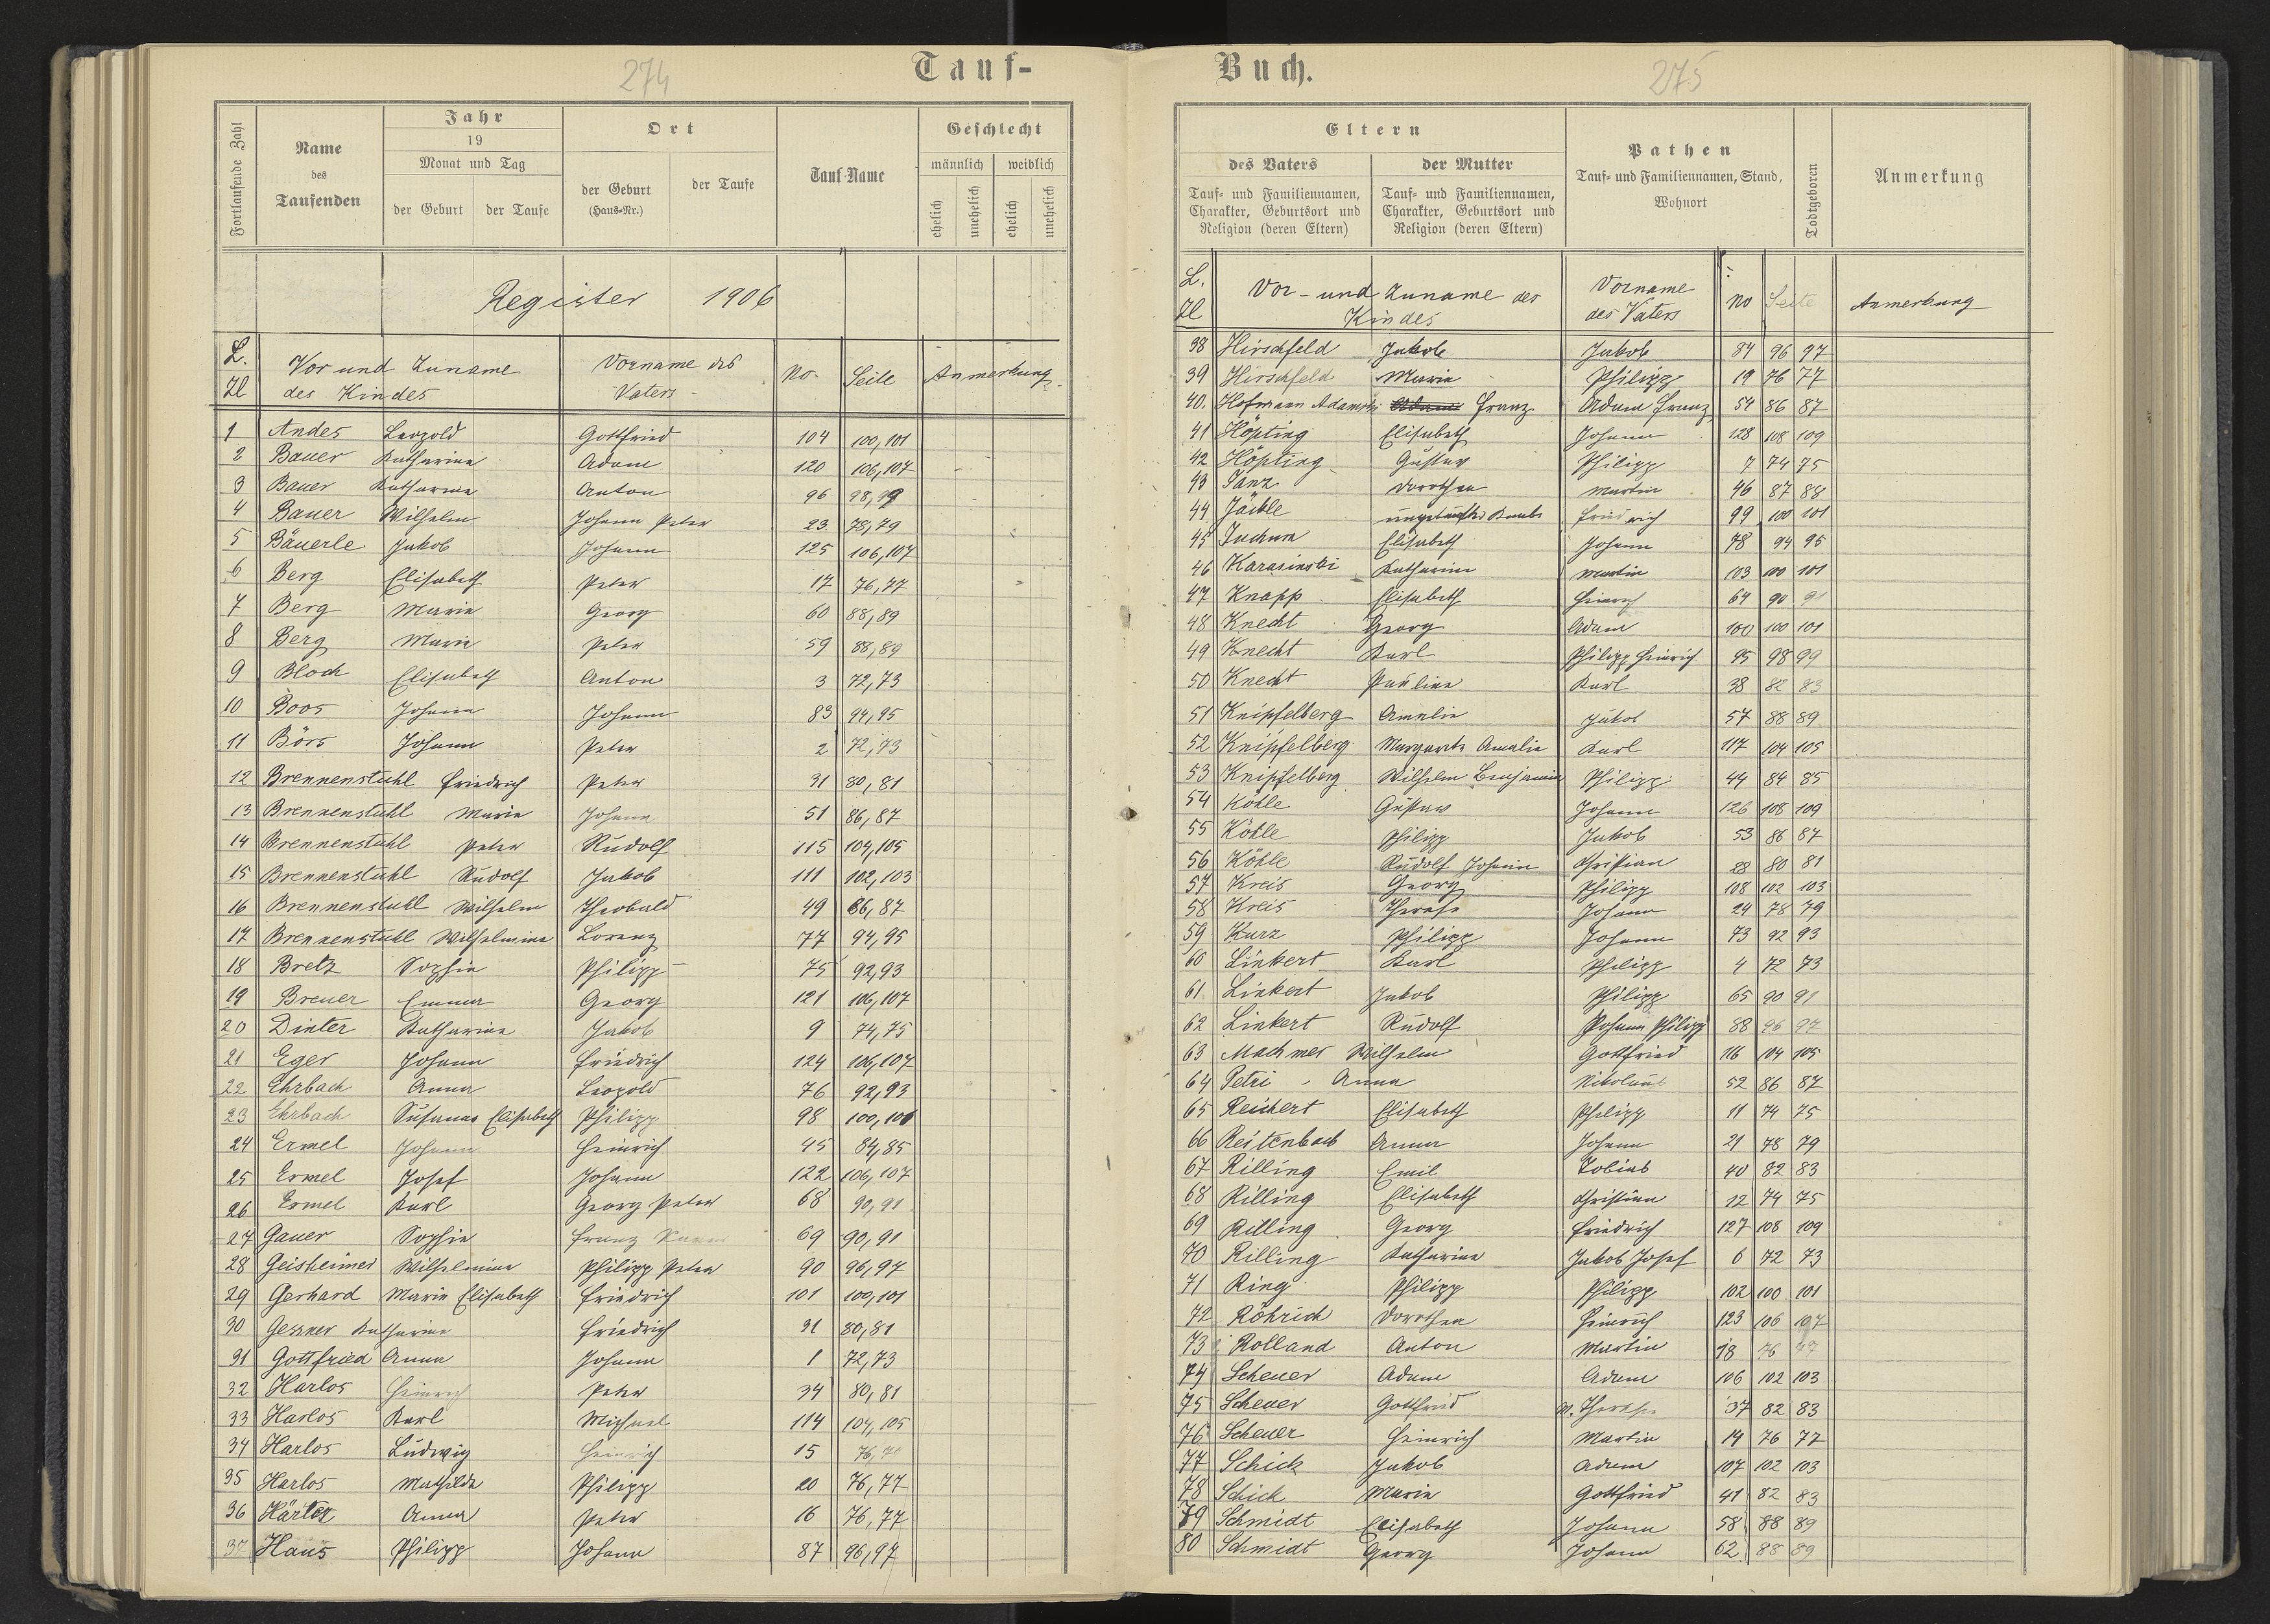 274
Tauf-
Fortlaufende Zahl
Name
des
Taufenden
Jahr
19
Monat und Tag
der Geburt
der Taufe
Ort
der Geburt
(Haus-Nr.)
der Taufe
Tauf-Name
Geschlecht
männlich
weiblich
ehelich
unehelich
ehelich
unehelich
Register 1906
L. Zl
Vor und Zuname des Kindes
Vorname des Vaters
No.
Seite
Anmerkung
1 Andes Leopold Gottfried 104 100,101
2 Bauer Katharina Adam 120 106,107
3 Bauer Katharina Anton 96 98,99
4 Bauer Wilhelm Johann Peter 23 78,79
5 Bäuerle Jakob Johann 125 106,107
6 Berg Elisabeth Peter 17 76,77
7 Berg Maria Georg 60 88,89
8 Berg Maria Peter 59 88,89
9 Bloch Elisabeth Anton 3 72,73
10 Boos Johann Johann 83 94,95
11 Börs Johann Peter 2 72,73
12 Brennenstuhl Friedrich Peter 31 80,81
13 Brennenstuhl Maria Johann 51 86,87
14 Brennenstuhl Peter Rudolf 115 104,105
15 Brennenstuhl Rudolf Jakob 111 102,103
16 Brennenstuhl Wilhelm Theobald 49 86,87
17 Brennenstuhl Wilhelmina Lorenz 77 94,95
18 Bretz Sophia Philipp 75 92,93
19 Breuer Emma Georg 121 106,107
20 Dinter Katharina Jakob 9 74,75
21 Eger Johann Friedrich 124 106,107
22 Ehrbach Anna Leopold 76 92,93
23 Ehrbach Susanna Elisabeth Philipp 98 100,101
24 Ermel Johann Heinrich 45 84,85
25 Ermel Josef Johann 122 106,107
26 Ermel Karl Georg Peter 68 90,91
27 Gauer Sophia Franz 69 90,91
28 Geisheimer Wilhelmina Philipp Peter 90 96,97
29 Gerhard Maria Elisabeth Friedrich 101 100,101
30 Gesner Katharina Friedrich 31 80,81
31 Gottfried Anna Johann 1 72,73
32 Harlos Heinrich Peter 34 80,81
33 Harlos Karl Michael 114 104,105
34 Harlos Ludwig Heinrich 15 76,77
35 Harlos Mathilda Philipp 20 76,77
36 Härter Anna Peter 16 76,77
37 Haus Philipp Johann 87 96,97
275
Buch.
Eltern
des Vaters
der Mutter
Tauf- und Familiennamen,
Charakter, Geburtsort und
Religion (deren Eltern)
Tauf- und Familiennamen,
Charakter, Geburtsort und
Religion (deren Eltern)
Pathen
Tauf- und Familiennamen, Stand,
Wohnort
Todtgeboren
Anmerkung
L. Zl
Vor- und Zuname des Kindes
Vorname des Vaters
No
Seite
Anmerkung
38 Hirschfeld Jakob Jakob 84 96 97
39 Hirschfeld Maria Philipp 19 76 77
40. Hofmann Adamski Adam Franz Adam Franz 54 86 87
41 Höpting Elisabeth Johann 128 108 109
42 Höpting Gustav Philipp 7 74 75
43 Janz Dorothea Martin 46 87 88
44 Jäckle ungetaufter Knabe Friedrich 99 100 101
45 Juchum Elisabeth Johann 78 94 95
46 Karasinski Katharina Martin 103 100 101
47 Knapp Elisabeth Heinrich 64 90 91
48 Knecht Georg Adam 100 100 101
49 Knecht Karl Philipp Heinrich 95 98 99
50 Knecht Paulina Karl 38 82 83
51 Knipfelberg Amalia Jakob 57 88 89
52 Knipfelberg Margareta Amalia Karl 117 104 105
53 Knipfelberg Wilhelm Benjamin Philipp 44 84 85
54 Köhle Gustav Johann 126 108 109
55 Köhle Philipp Jakob 53 86 87
56 Köhle Rudolf Johann Christian 28 80 81
57 Kreis Georg Philipp 108 102 103
58 Kreis Theresa Johann 24 78 79
59 Kurz Philipp Johann 73 92 93
60 Linkert Karl Philipp 4 72 73
61 Linkert Jakob Philipp 65 90 91
62 Linkert Rudolf Johann Philipp 88 96 97
63 Machmer Wilhelm Gottfried 116 104 105
64 Petri Anna Nikolaus 52 86 87
65 Reichert Elisabeth Philipp 11 74 75
66 Reitenbach Anna Johann 21 78 79
67 Rilling Emil Tobias 40 82 83
68 Rilling Elisabeth Christian 12 74 75
69 Rilling Georg Friedrich 127 108 109
70 Rilling Katharina Jakob Josef 6 72 73
71 Ring Philipp Philipp 102 100 101
72 Röhrich Dorothea Heinrich 123 106 107
73 Rolland Anton Martin 18 76 77
74 Scheuer Adam Adam 106 102 103
75 Scheuer Gottfried M. Theresa 37 82 83
76 Scheuer Heinrich Martin 14 76 77
77 Schick Jakob Adam 107 102 103
78 Schick Maria Gottfried 41 82 83
79 Schmidt Elisabeth Johann 58 88 89
80 Schmidt Georg Johann 62 88 89